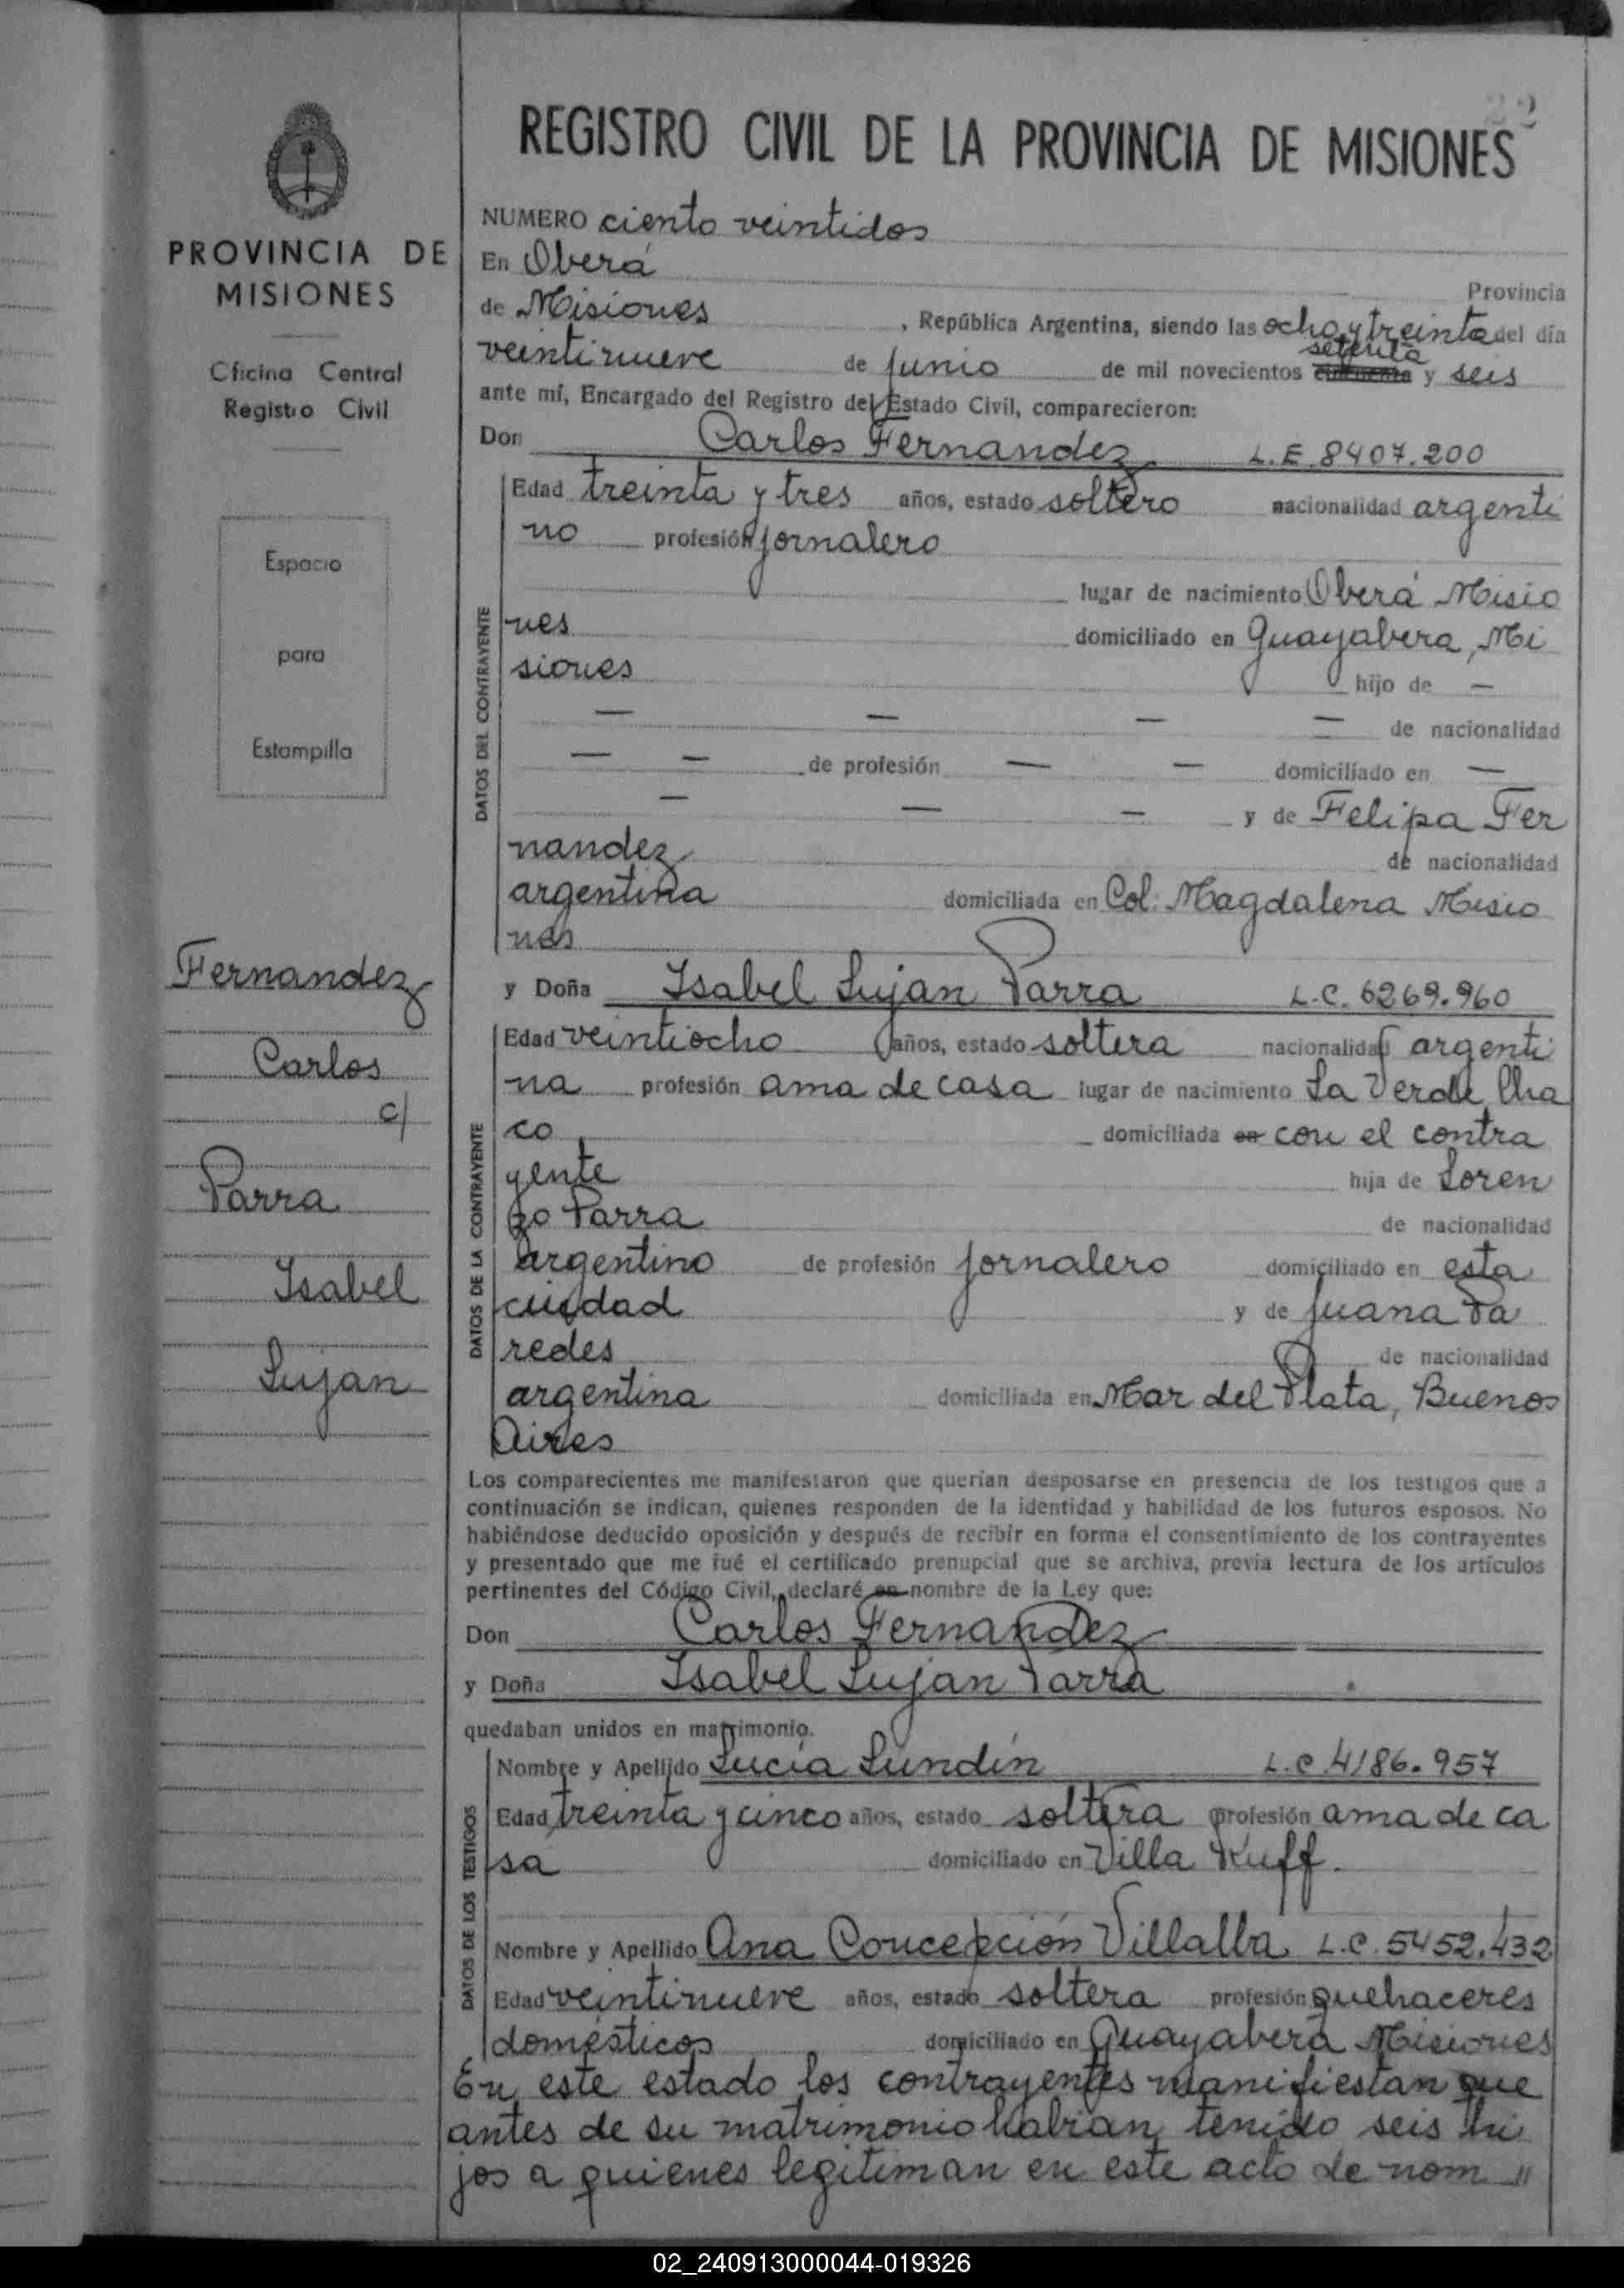 22
REGISTRO CIVIL DE LA PROVINCIA DE MISIONES
PROVINCIA DE
MISIONES
Oficina Central
Registro Civil
Espacio
para
Estampilla
Fernandez
Carlos
c/
Parra
Isabel
Lujan
NUMERO ciento veintidos
En Oberá Provincia
de Misiones, República Argentina, siendo las ocho y treinta del día
veintinueve de junio de mil novecientos cincuenta setenta y seis
ante mí, Encargado del Registro del Estado Civil, comparecieron:
Don Carlos Fernandez L.E. 8407.200
DATOS DEL CONTRAYENTE
Edad treinta y tres años, estado soltero nacionalidad argenti
no profesión jornalero
lugar de nacimiento Oberá Misio
nes domiciliado en Guayabera, Mi
siones hijo de —
— — — — de nacionalidad
— — de profesión — — domiciliado en —
— — — y de Felipa Fer
nandez de nacionalidad
argentina domiciliada en Col: Magdalena Misio
nes
y Doña Isabel Lujan Parra L.C. 6269.960
DATOS DE LA CONTRAYENTE
Edad veintiocho años, estado soltera nacionalidad argenti
na profesión ama de casa lugar de nacimiento La Verde, Cha
co domiciliada en con el contra
yente hija de Loren
zo Parra de nacionalidad
argentino de profesión jornalero domiciliado en esta
ciudad y de Juana Pa
redes de nacionalidad
argentina domiciliada en Mar del Plata, Buenos
Aires
Los comparecientes me manifestaron que querían desposarse en presencia de los testigos que a
continuación se indican, quienes responden de la identidad y habilidad de los futuros esposos. No
habiéndose deducido oposición y después de recibir en forma el consentimiento de los contrayentes
y presentado que me fué el certificado prenupcial que se archiva, previa lectura de los artículos
pertinentes del Código Civil, declaré en nombre de la Ley que:
Don Carlos Fernandez
y Doña Isabel Lujan Parra
quedaban unidos en matrimonio.
DATOS DE LOS TESTIGOS
Nombre y Apellido Lucía Lundín L.C 4186.957
Edad treinta y cinco años, estado soltera profesión ama de ca
sa domiciliado en Villa Kuff.
Nombre y Apellido Ana Concepción Villalba L.C. 5452.432
Edad veintinueve años, estado soltera profesión quehaceres
domésticos domiciliado en Guayabera Misiones
En este estado los contrayentes manifiestan que
antes de su matrimonio habian tenido seis hi
jos a quienes legitiman en este acto de nom "
02_240913000044-019326